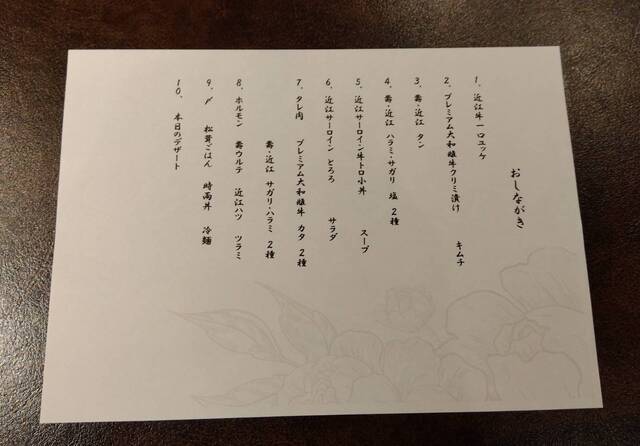 おしながき
1、近江牛一口ユッケ
2、プレミアム大和雌牛クリミ漬け キムチ
3、壽・近江 タン
4、壽・近江 ハラミ・サガリ 塩 2種
5、近江サーロイン牛トロ小丼 スープ
6、近江サーロイン とろろ サラダ
7、タレ肉 プレミアム大和雌牛 カタ 2種
壽・近江 サガリ・ハラミ 2種
8、ホルモン 壽ウルテ 近江ハツ ツラミ
9、〆 松茸ごはん 時雨丼 冷麺
10、本日のデザート